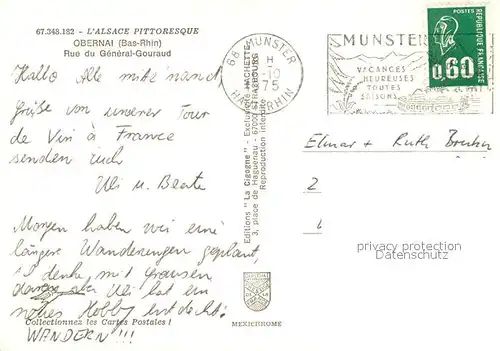 67.348.182 - L'ALSACE PITTORESQUE
OBERNAI (Bas-Rhin)
Rue du Général-Gouraud
Hallo Alle mite'nand
Grüße von unserer Tour
de Vin à France
senden Euch
Uli u. Beate
Morgen haben wir eine
längere Wanderungen geplant,
ich denke mit Grausen
daran Uli hat ein
neues Hobby entdeckt:
WANDERN!!!
Collectionnez les Cartes Postales !
Editions "La Cigogne" - Exclusivité HACHETTE
3, place de Haguenau - 67000 STRASBOURG
Reproduction interdite
MEXICHROME
68 MUNSTER
H
-10
75
HAUT-RHIN
MUNSTER
VACANCES
HEUREUSES
TOUTES
SAISONS
POSTES
0,60
REPUBLIQUE FRANÇAISE
Elmar + Ruth
2
privacy protection
Datenschutz